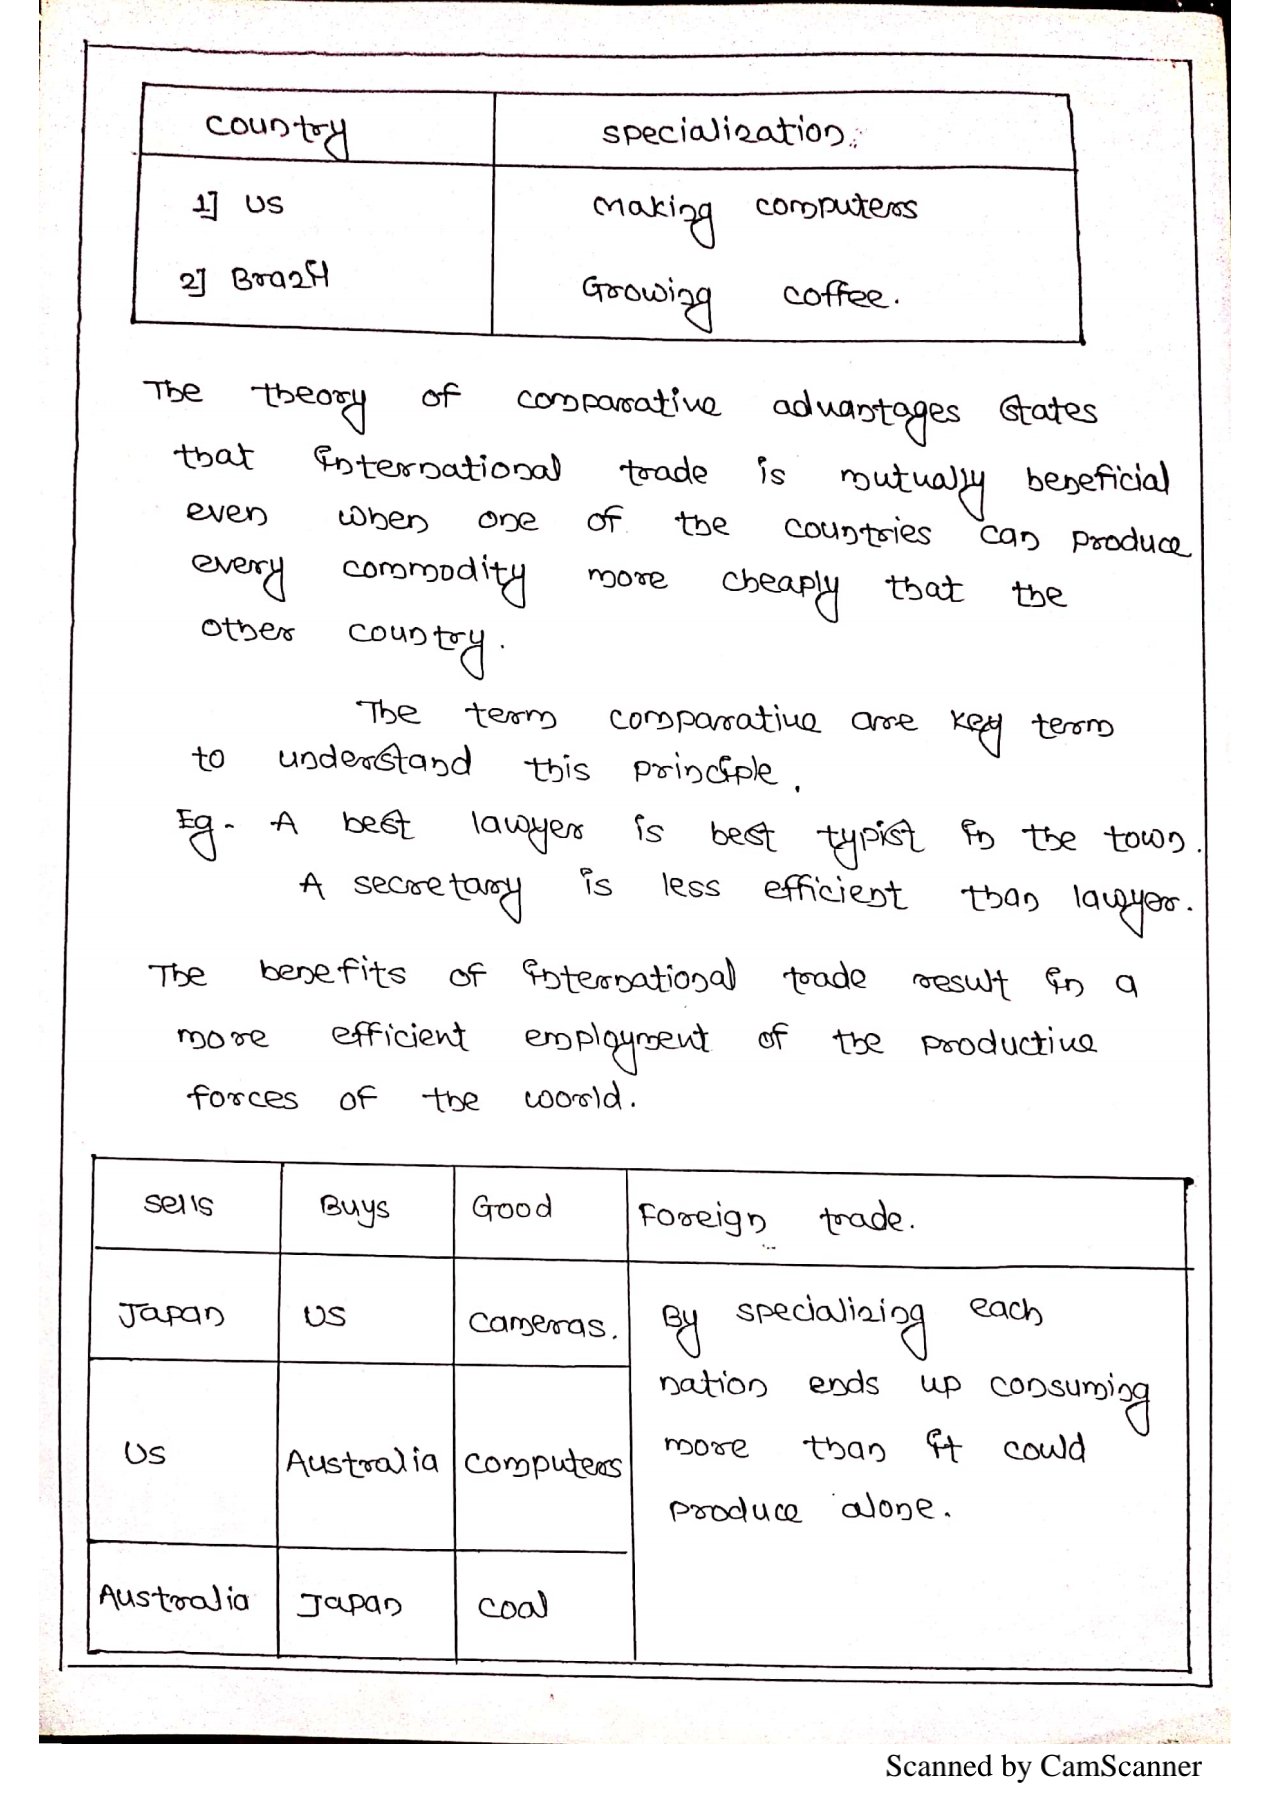 Country Specialization.
1] US Making computers
2] Brazil Growing coffee.
The theory of comparative advantages states
that international trade is mutually beneficial
even when one of the countries can produce
every commodity more cheaply that the
other country.
The term comparative are key term
to understand this principle.
Eg- A best lawyer is best typist in the town.
A secretary is less efficient than lawyer.
The benefits of international trade result in a
more efficient employment of the productive
forces of the world.
Sells Buys Good Foreign trade.
Japan US Cameras. By specializing each
nation ends up consuming
US Australia Computers more than it could
produce alone.
Australia Japan Coal
Scanned by CamScanner